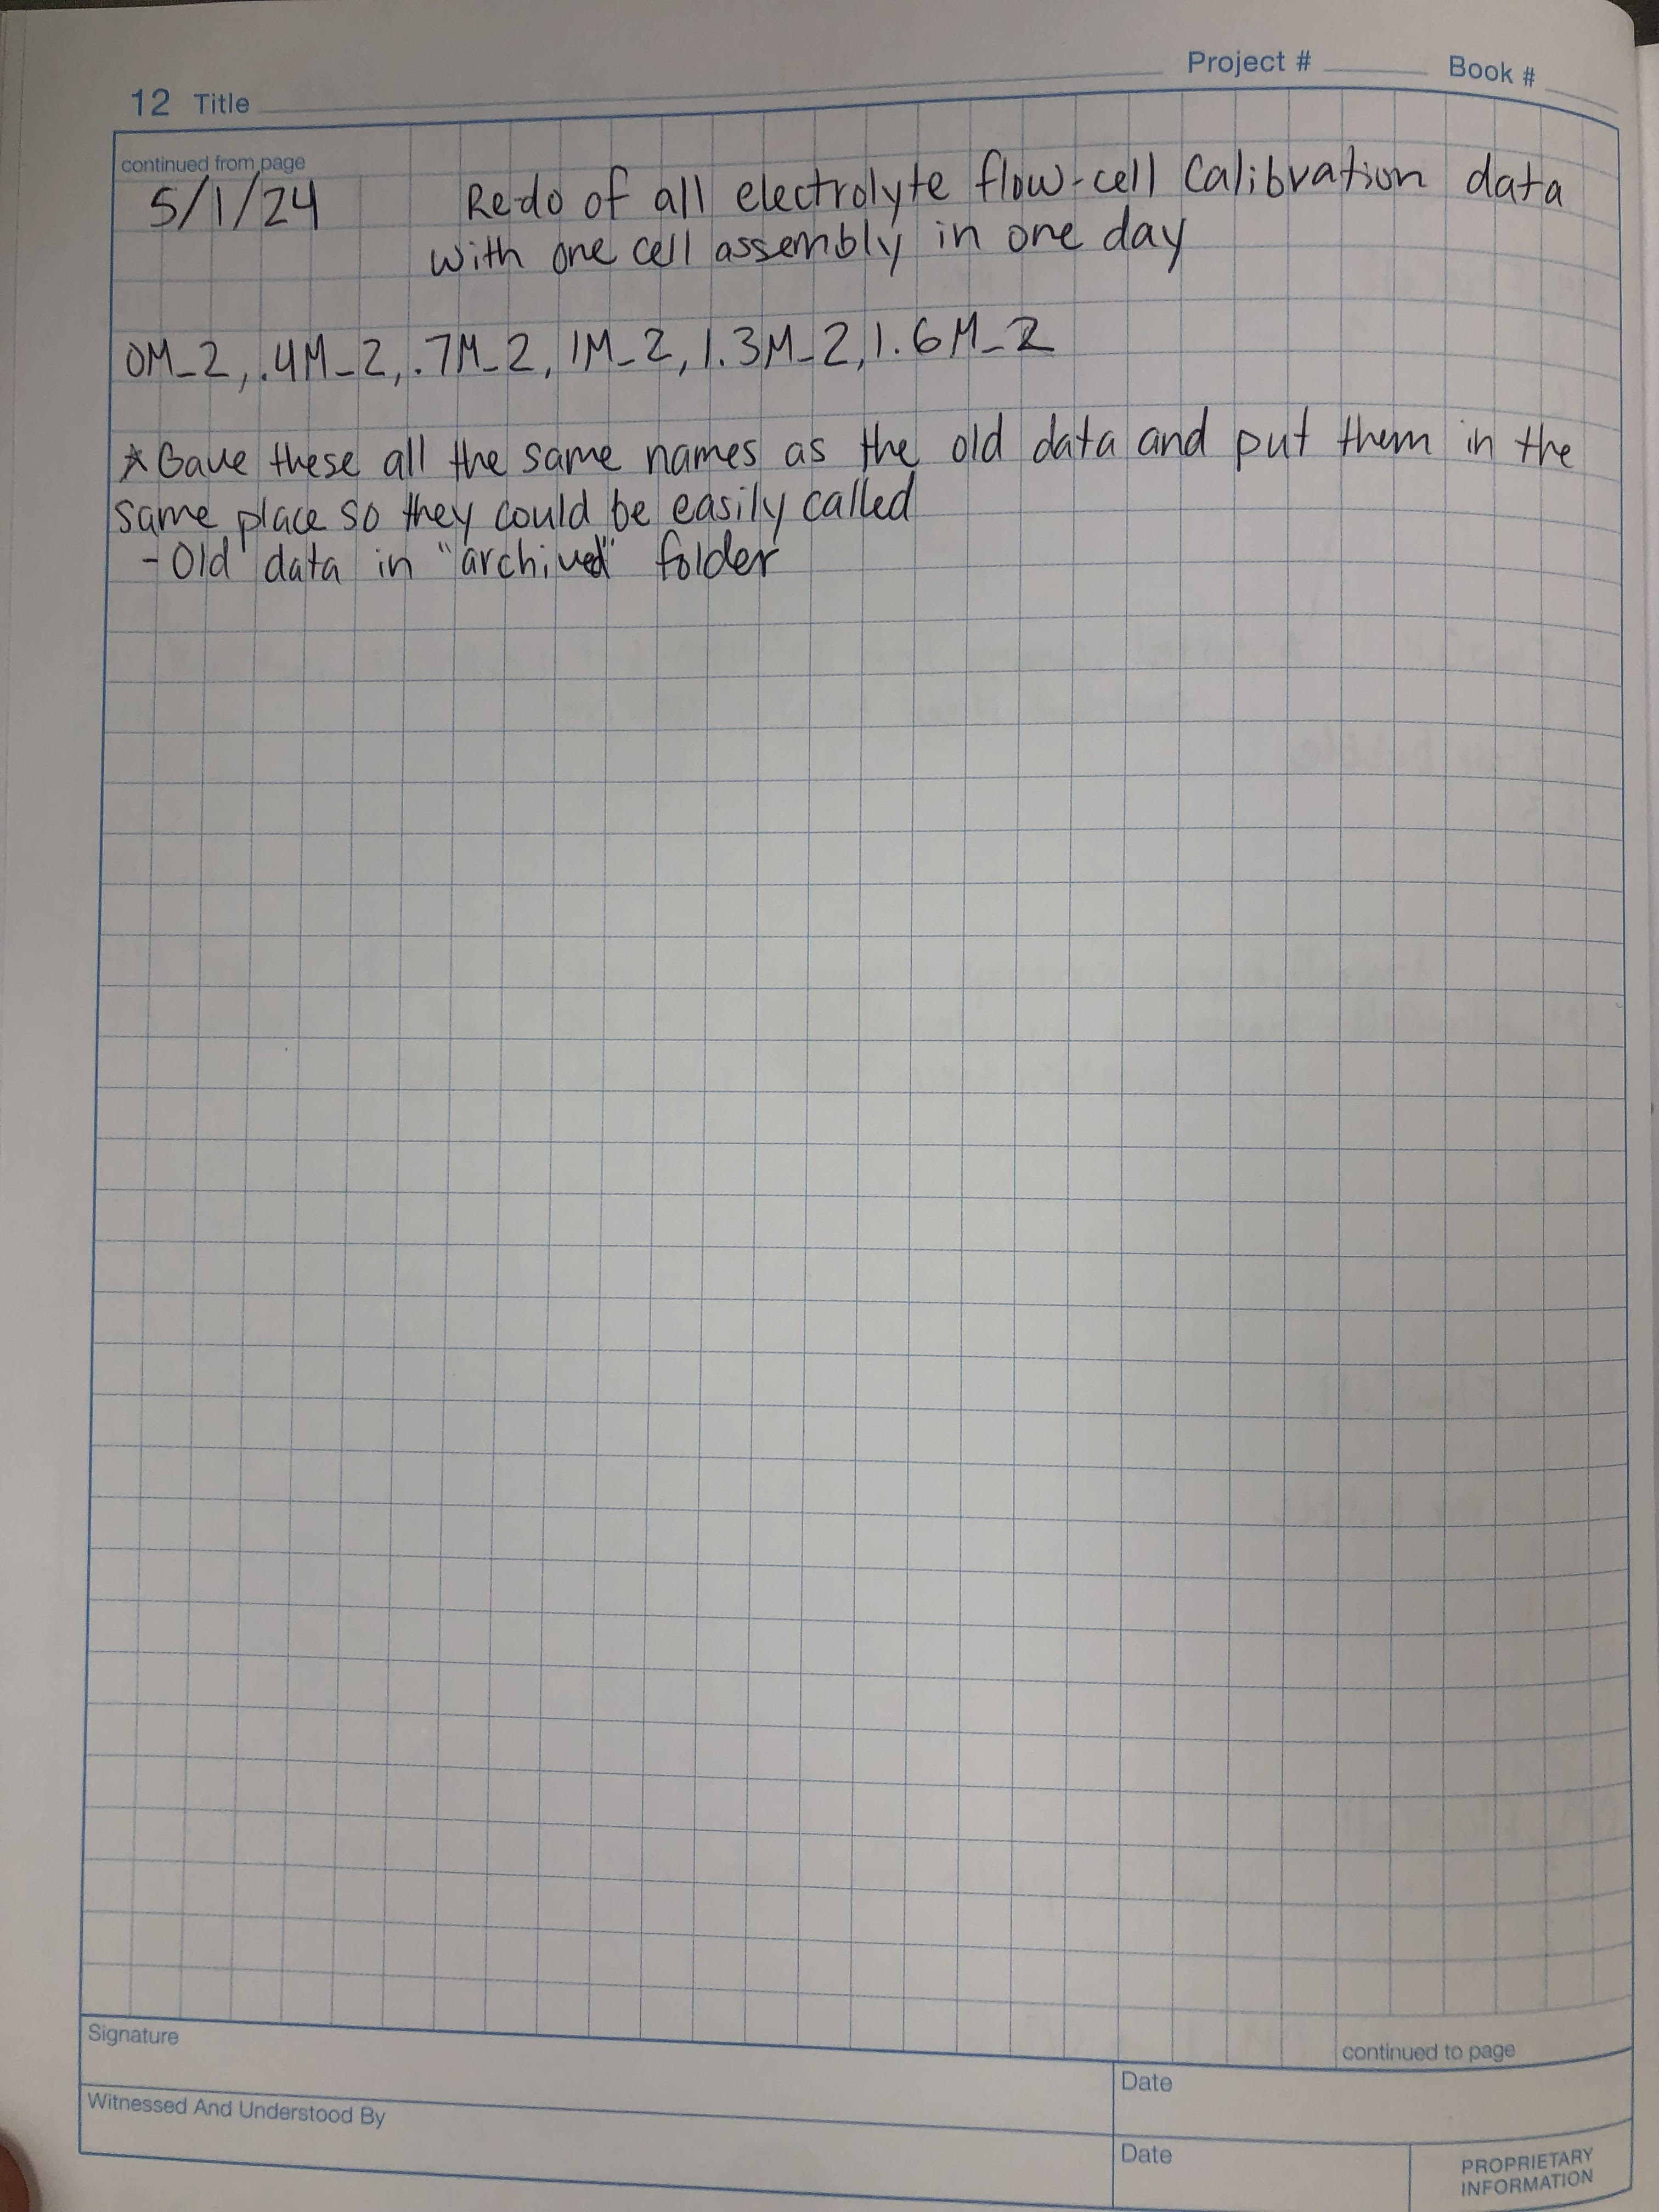 Project # Book #
12 Title
continued from page
5/1/24 Redo of all electrolyte flow-cell Calibration data
with one cell assembly in one day
0M_2, .4M_2, .7M_2, 1M_2, 1.3M_2, 1.6M_2
* Gave these all the same names as the old data and put them in the
same place so they could be easily called
- Old data in "archived" folder
Signature
continued to page
Date
Witnessed And Understood By
Date
PROPRIETARY
INFORMATION